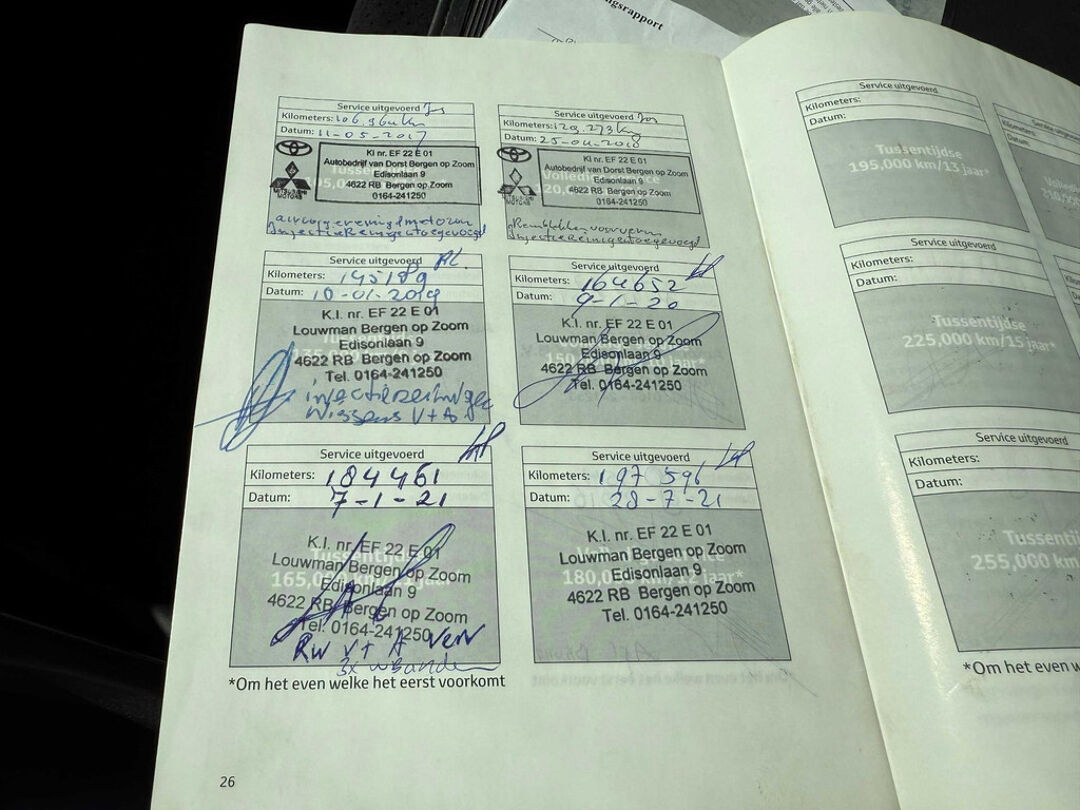 ngsrapport
Service uitgevoerd
Kilometers: 106.960 km
Datum: 11-05-2017
KI nr. EF 22 E 01
Autobedrijf van Dorst Bergen op Zoom
Edisonlaan 9
4622 RB Bergen op Zoom
0164-241250
MITSUBISHI
MOTORS
InjectieReinigertoegevoegd
Service uitgevoerd
Kilometers: 129.273 km
Datum: 25-04-2018
KI nr. EF 22 E 01
Autobedrijf van Dorst Bergen op Zoom
Edisonlaan 9
4622 RB Bergen op Zoom
0164-241250
MITSUBISHI
MOTORS
Remblokken voor vern
InjectieReinigertoegevoegd
Service uitgevoerd
Kilometers: 145189
Datum: 10-01-2019
K.I. nr. EF 22 E 01
Louwman Bergen op Zoom
Edisonlaan 9
4622 RB Bergen op Zoom
Tel. 0164-241250
Wissens V+A
Service uitgevoerd
Kilometers: 164652
Datum: 9-1-20
K.I. nr. EF 22 E 01
Louwman Bergen op Zoom
Edisonlaan 9
4622 RB Bergen op Zoom
Tel. 0164-241250
Service uitgevoerd
Kilometers: 184461
Datum: 7-1-21
K.I. nr. EF 22 E 01
Louwman Bergen op Zoom
Edisonlaan 9
4622 RB Bergen op Zoom
Tel. 0164-241250
RW V+A VerV
Service uitgevoerd
Kilometers: 197596
Datum: 28-7-21
K.I. nr. EF 22 E 01
Louwman Bergen op Zoom
Edisonlaan 9
4622 RB Bergen op Zoom
Tel. 0164-241250
180,000 km/12 jaar*
*Om het even welke het eerst voorkomt
26
Service uitgevoerd
Kilometers:
Datum:
Tussentijdse
195,000 km/13 jaar*
Service uitgevoerd
Kilometers:
Datum:
Tussentijdse
225,000 km/15 jaar*
Service uitgevoerd
Kilometers:
Datum:
Tussentij
255,000 km
*Om het even w